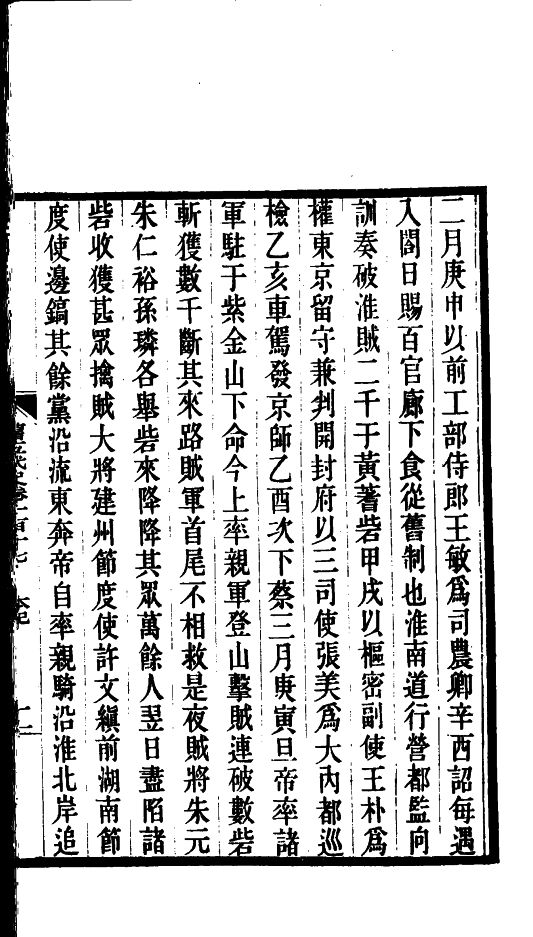 二月庚申以前工部侍郎王敏爲司農卿辛酉詔每遇
入閤日賜百官廊下食從舊制也淮南道行營都監向
訓奏破淮賊二千于黃蓍砦甲戌以樞密副使王朴爲
權東京留守兼判開封府以三司使張美爲大內都巡
檢乙亥車駕發京師乙酉次下蔡三月庚寅旦帝率諸
軍駐于紫金山下命今上率親軍登山擊賊連破數砦
斬獲數千斷其來路賊軍首尾不相救是夜賊將朱元
朱仁裕孫璘各舉砦來降降其眾萬餘人翌日盡陷諸
砦收獲甚眾擒賊大將建州節度使許文縝前湖南節
度使邊鎬其餘黨沿流東奔帝自率親騎沿淮北岸追